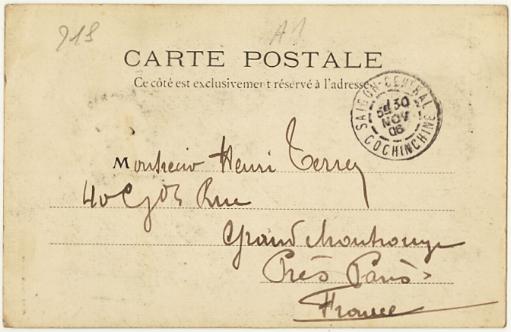 918
A1
CARTE POSTALE
Ce côté est exclusivement réservé à l'adresse
SAIGON-CENTRAL
30
NOV
06
COCHINCHINE
Monsieur Henri Terrey
40 Rue
Grand Montrouge
Près Paris
France